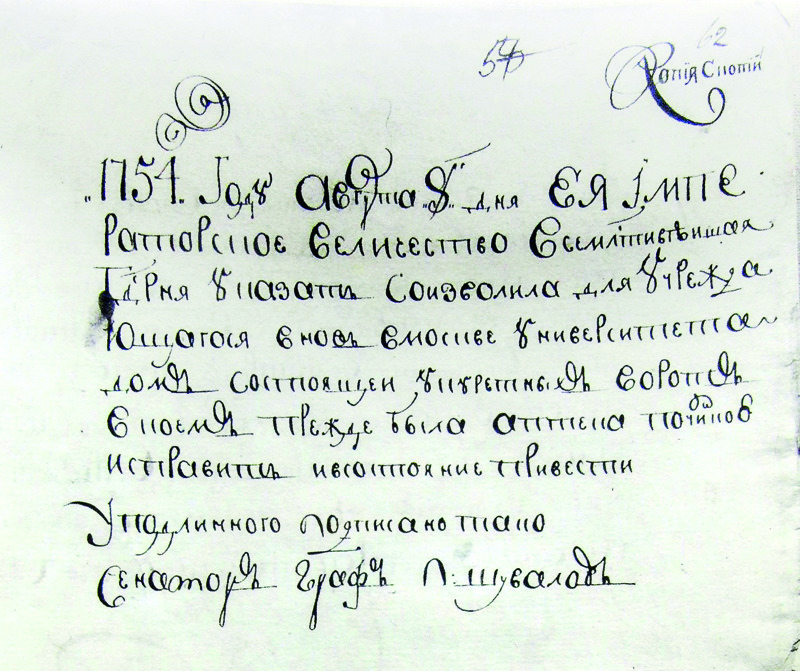 54
62
Копiя Скопiи
1754. Году Августа „8" дня ЕЯ IМПЕ
раторское величество Всемлтивѣишая
Гдрня Указать соизволила для Учрежда
ющагося вновь вмоскве Университета
домъ состоящеи Укуретныхъ воротъ
вкоемъ прежде была аптека починкою
исправить ивсостояние привести
Уподлинного подписано тако
Сенаторъ Графъ П: шуваловъ